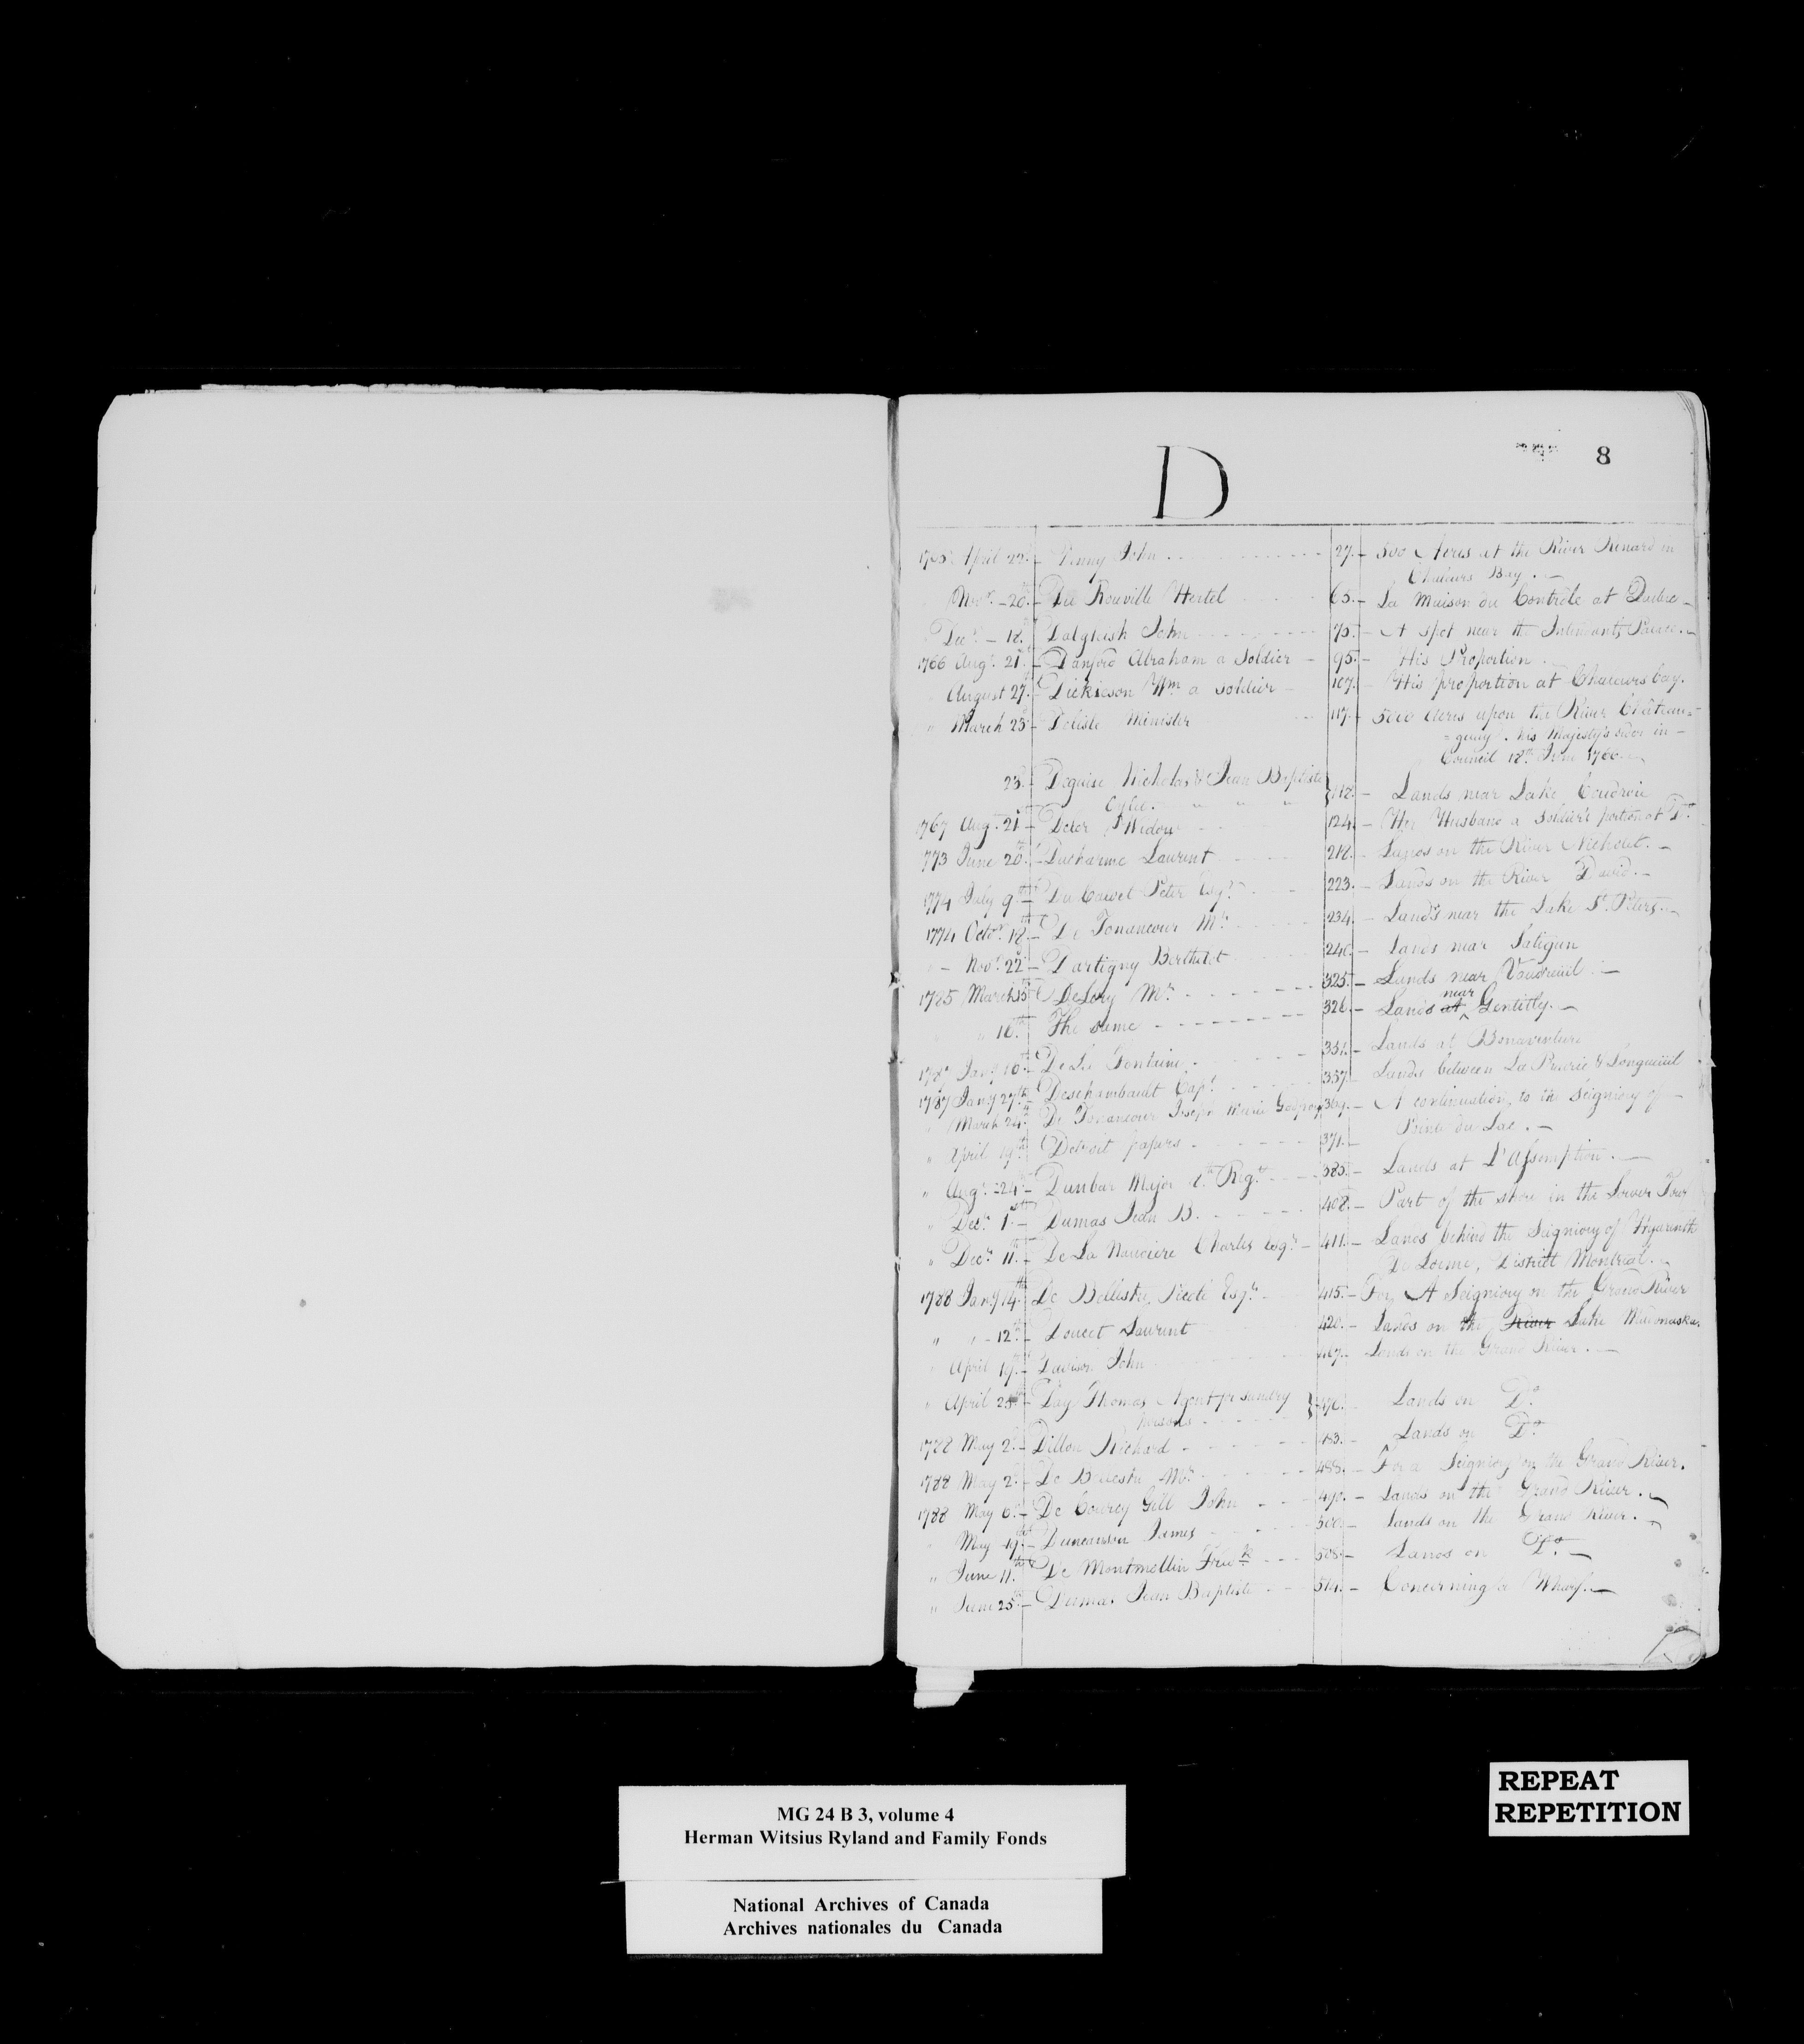 8
D
1765 April 22. - Denny John - 27. - 500 Acres at the River Renard in
Chaleurs Bay. -
Novr. - 20. - De Rouville Hertel 65. - La Maison du Controle at Quebec -
Decr. - 18. Dalglish John 75. - A spot near the Intendants Palace. -
1766 Augt. 21st - Danford Abraham a Soldier - 95. - His Proportion.
August 27. - Dickieson Wm a Soldier 107. - His proportion at Chaleurs bay.
" March 23d - Delisle Minister 117. - 5000 Acres upon the River Chateau=
=guay. his Majesty's order in -
Council 18th June 1766. -
23d. - Deguise Nicholas & Jean Baptiste
} 118. - Lands near Lake
1767 Augt. 21st - Widow 124. - Her Husband a Soldier's portion at Do.
1773 June 20th. - Ducharme Laurent 218. - Lands on the River Nicholet. -
1774 July 9th - Du Calvet Peter Esqr. 223. - Lands on the River David. -
1774 Octor. 18th - De Tonancour Mr. 234. - Lands near the Lake St. Peters. -
- Novr. 22d - Dartigny Berthelot 240. - Lands near
1785 March 15th DeLery Mr. 325. - Lands near Vaudreuil. -
" " 16th. The same 326. - Lands at near Gentilly. -
1787 Jany. 16th. - De La Fontaine 351. - Lands at Bonaventure
1787 Jany 27th. - Deschambault Capt. 357. Lands between La Prairie & Longueuiil
" March 24th. De Tonancour Joseph Marie Godfroy 369. - A continuation, to the Seigniory of -
Pointe du Lac. -
" April 19th. Detroit papers 371. -
" Augt. 24th. - Dunbar Major Regt. 385. - Lands at L'Assomption. -
" Decr. 1st. - Dumas Jean B. 408. - Part of the shore in the Lower Town
" Decr. 11th. - De La Naudiere Charles Esqr. - 411. - Lands behind the Seigniory of Hyacinth
De Lorme, District Montreal. -
1788 Jany 14th. De Bellestre, Picoté Esqr. 415. - For A Seigniory on the Grand River
" " - 12th. - Doucet Laurent 420. - Lands on the River Lake Midomaska.
" April 19th. - Davison John 467. - Lands on the Grand River. -
" April 25th - Day Thomas, Agent for sundry
persons } 476. - Lands on Do.
1788 May 2d. - Dillon Richard 483. - Lands on Do.
1788 May 2d. - De Bellestre Mr. 488. - For a Seigniory on the Grand River.
1788 May 6th. - De Courcy Gill John 490. - Lands on the Grand River. -
" May 19th. - Duncanson James 500. - Lands on the Grand River. -
" June 11th. De Montmollin Fredk 508. - Lands on Do. -
" June 25th. - Dumas Jean Baptiste 514. - Concerning a Wharf. -
REPEAT
REPETITION
MG 24 B 3, volume 4
Herman Witsius Ryland and Family Fonds
National Archives of Canada
Archives nationales du Canada